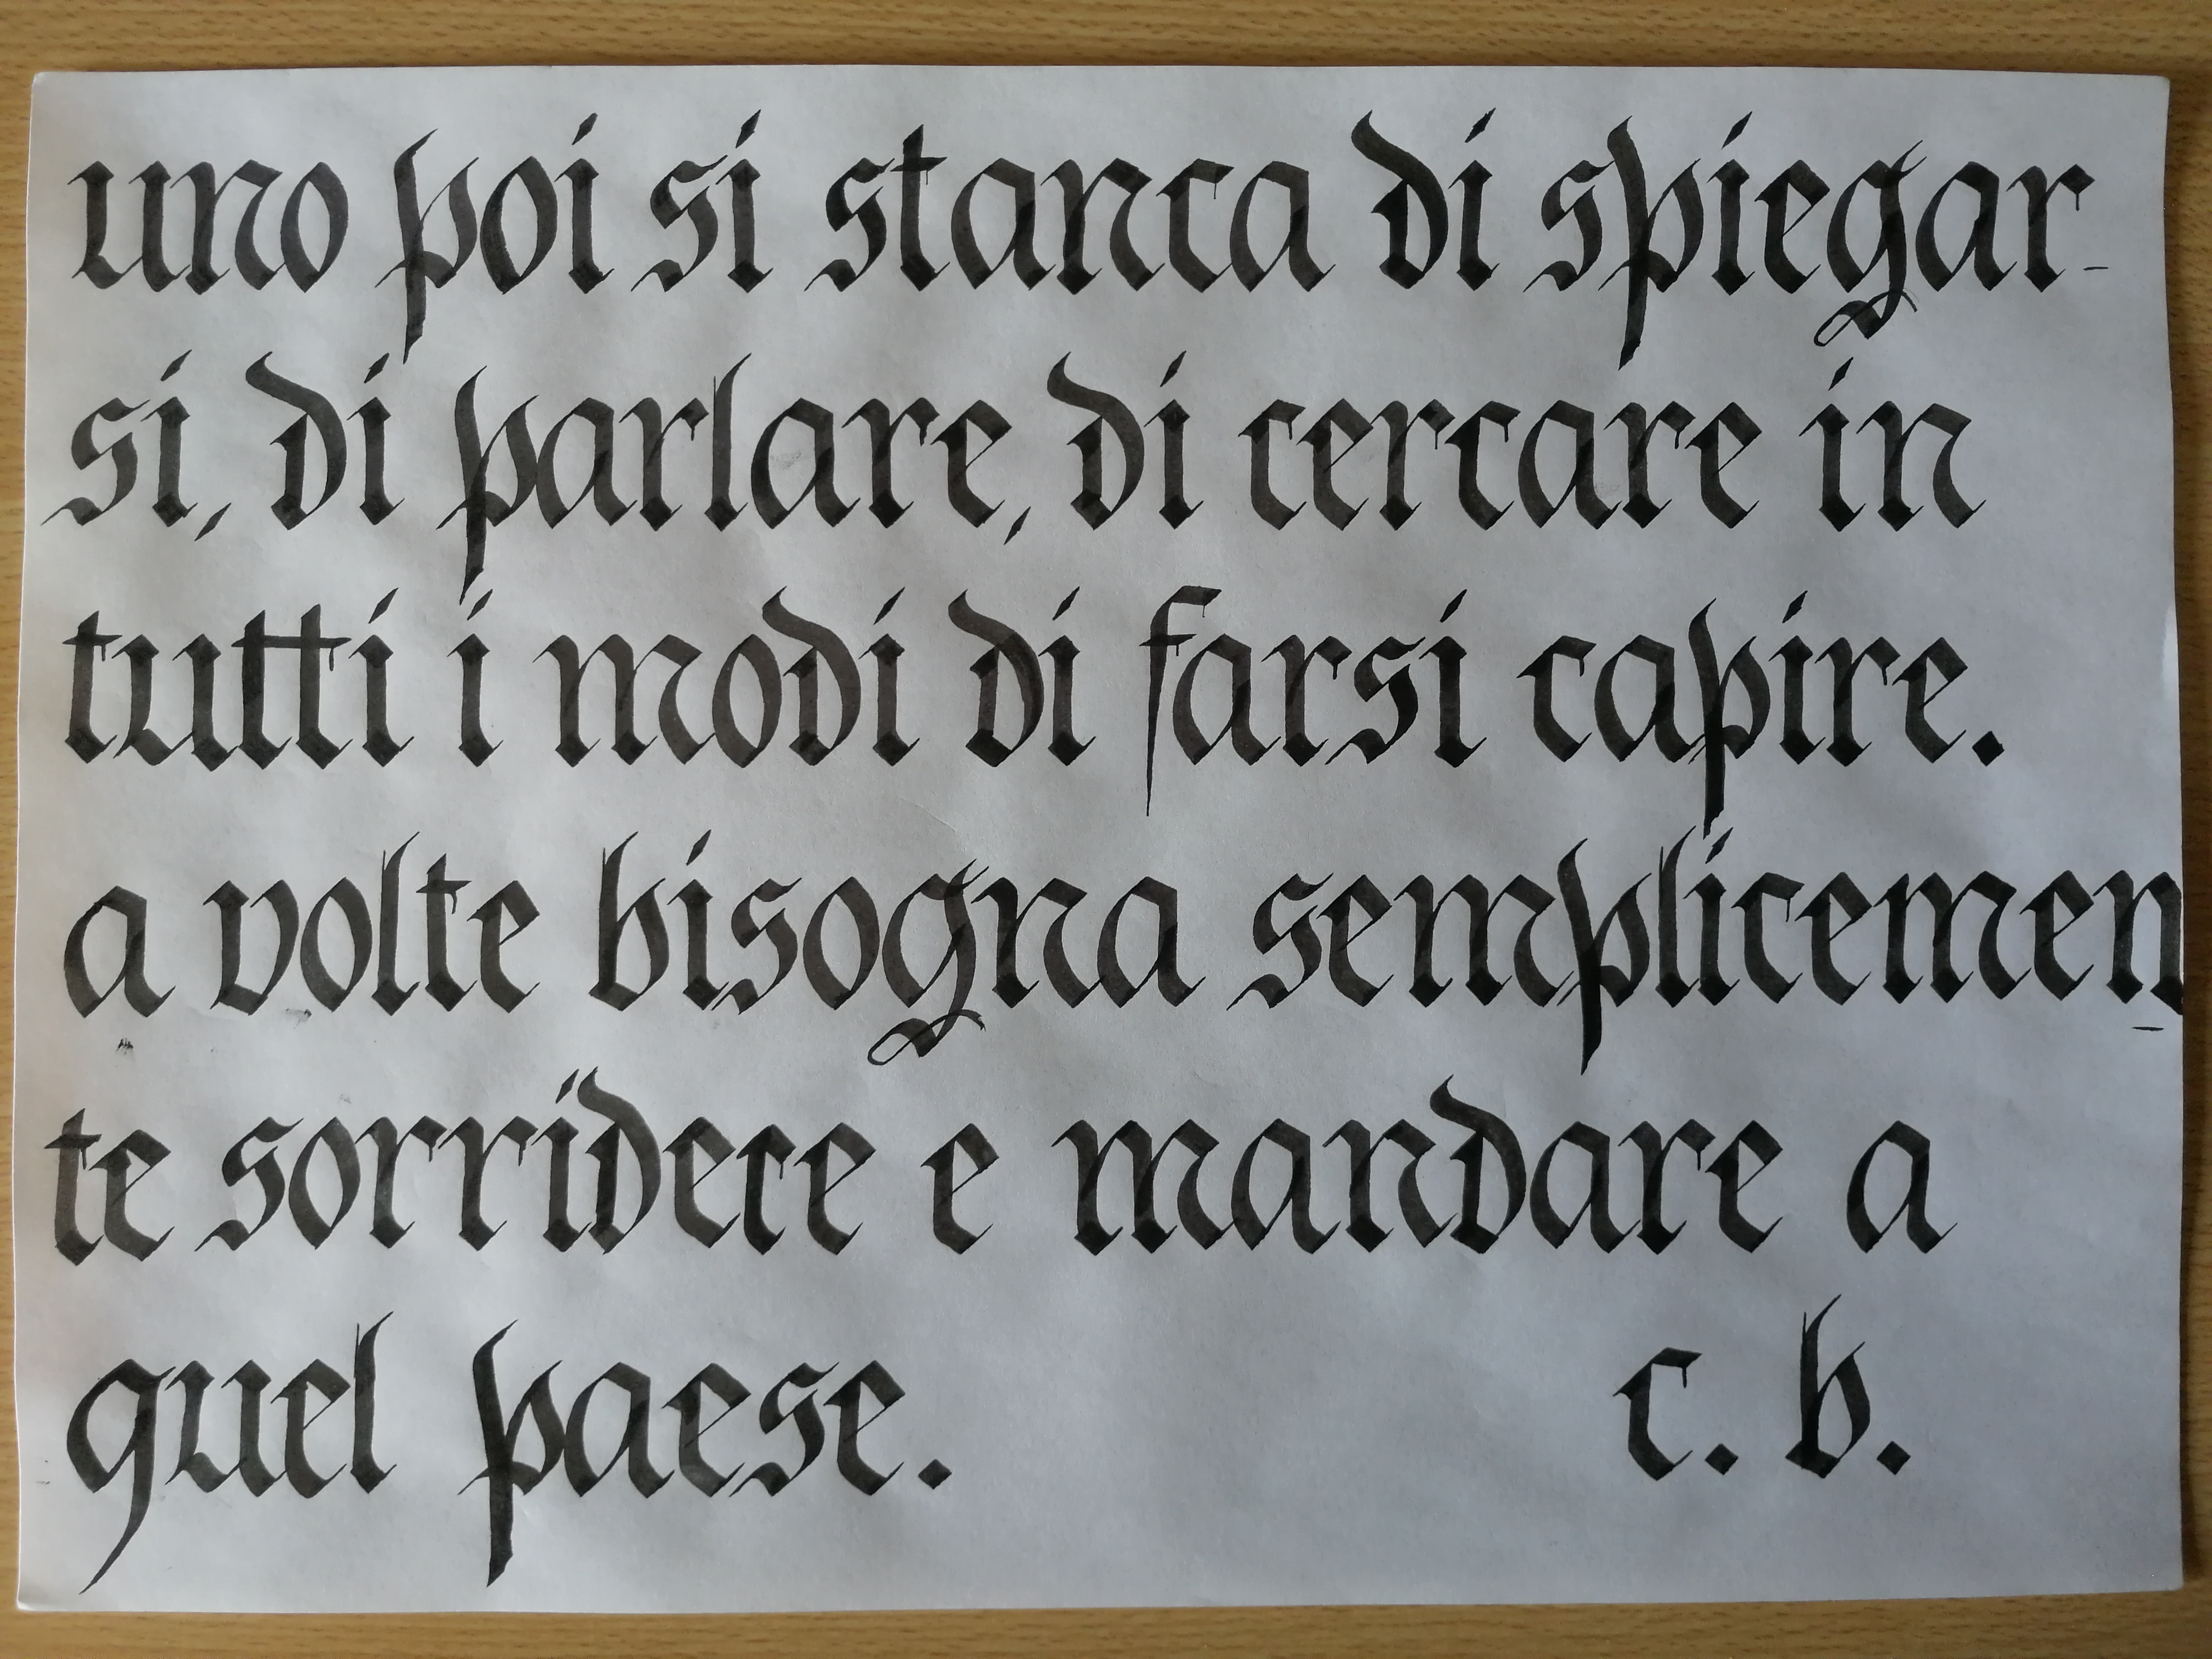 uno poi si stanca di spiegar-
si, di parlare, di cercare in
tutti i modi di farsi capire.
a volte bisogna semplicemen-
te sorridere e mandare a
quel paese. c. b.